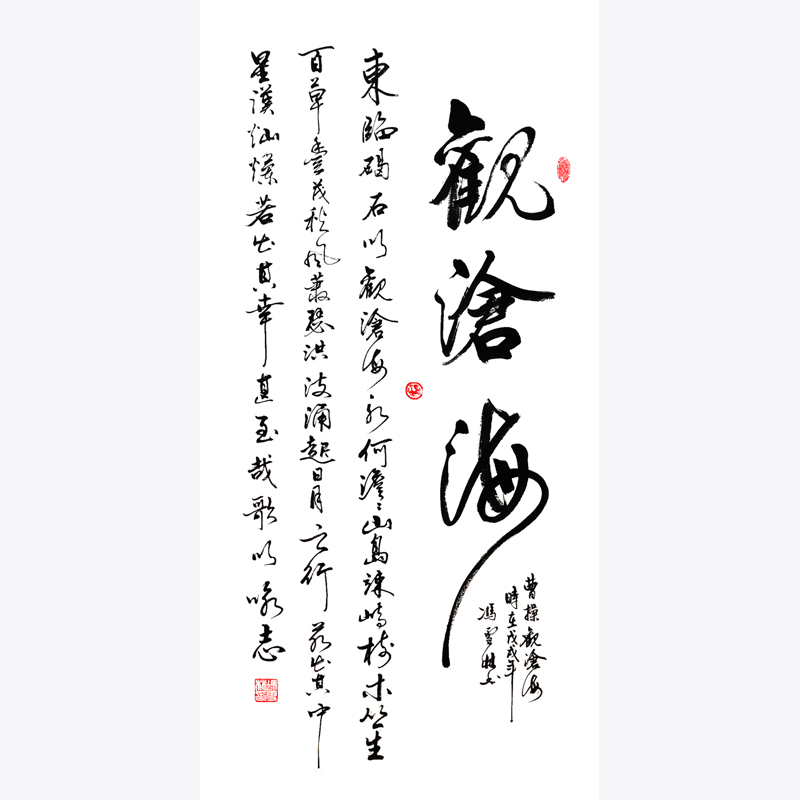 觀滄海
曹操觀滄海
時在戊戌年
馮雪林书
東臨碣石以觀滄海水何澹〻山島竦峙樹木丛生
百草豊茂秋風蕭瑟洪波涌起日月之行若出其中
星漢灿爛若出其幸甚至哉歌以咏志